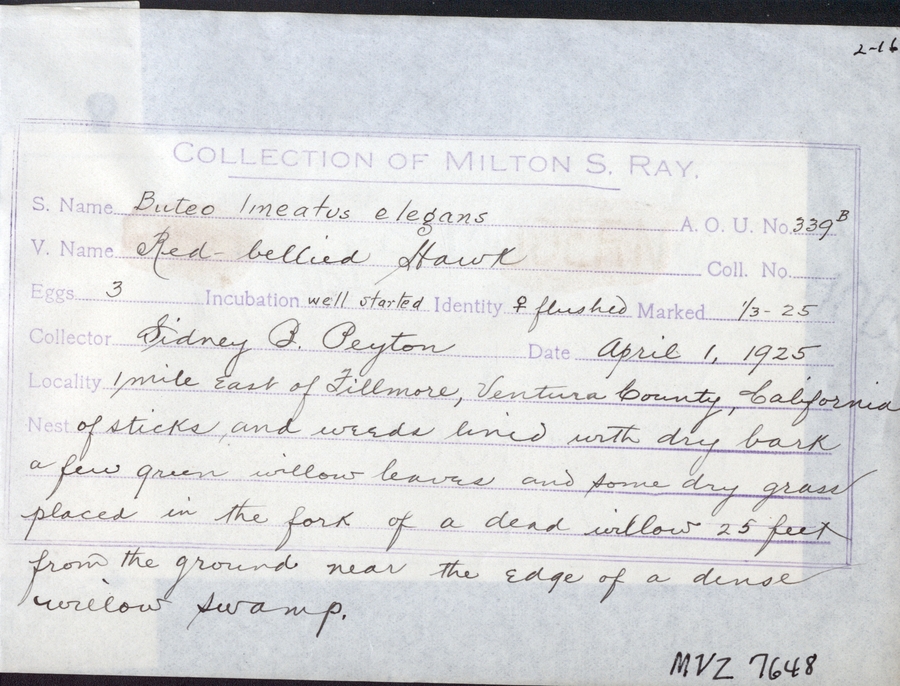 2-16
COLLECTION OF MILTON S. RAY.
S. Name Buteo lineatus elegans A. O. U. No. 339B
V. Name Red-bellied Hawk Coll. No.
Eggs 3 Incubation well started Identity ♀ flushed Marked 1/3-25
Collector Sidney B. Peyton Date April 1, 1925
Locality 1 mile East of Fillmore, Ventura County, California
Nest of sticks and weeds lined with dry bark
a few green willow leaves and some dry grass
placed in the fork of a dead willow 25 feet
from the ground near the edge of a dense
willow swamp.
MVZ 7648